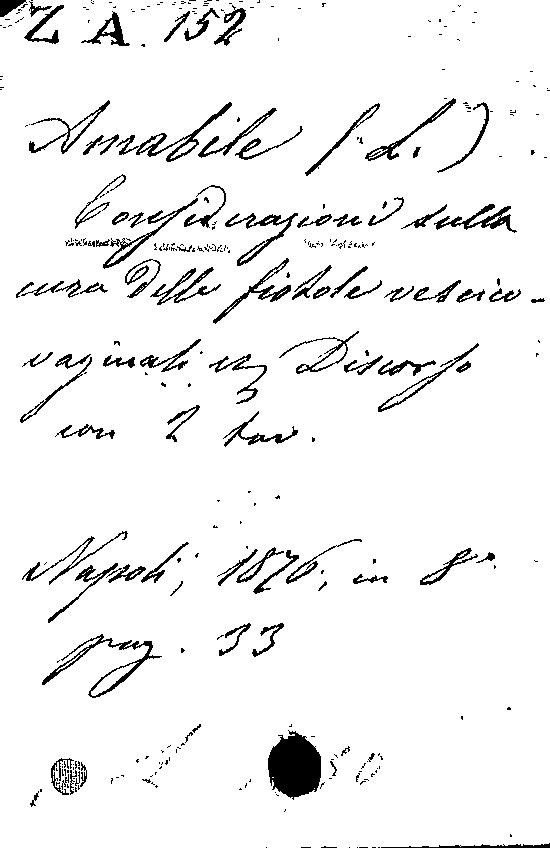 Z A. 152
Amabile (L.)
Considerazioni sulla
cura delle fistole vescico-
vaginali Discorso
con 2 tav.
Napoli, 1876, in 8°
pag. 33